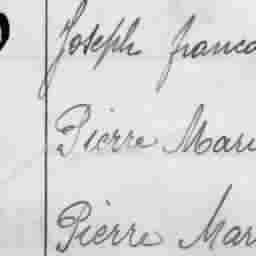 Joseph franco
Pierre Mari
Pierre Mar